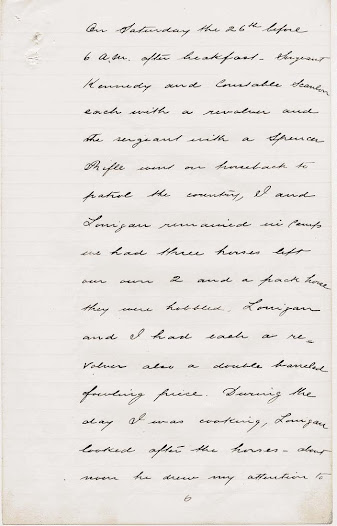 On Saturday the 26th before
6 A.M. after breakfast - Sergeant
Kennedy and Constable Scanlon
each with a revolver and
the sergeant with a Spencer
Rifle went on horseback to
patrol the country, I and
Lonigan remained in Camp
we had three horses left
our own 2 and a pack horse
they were hobbled. Lonigan
and I had each a re=
volver also a double barreled
fowling piece. During the
day I was cooking, Lonigan
looked after the horses - about
noon he drew my attention to
6